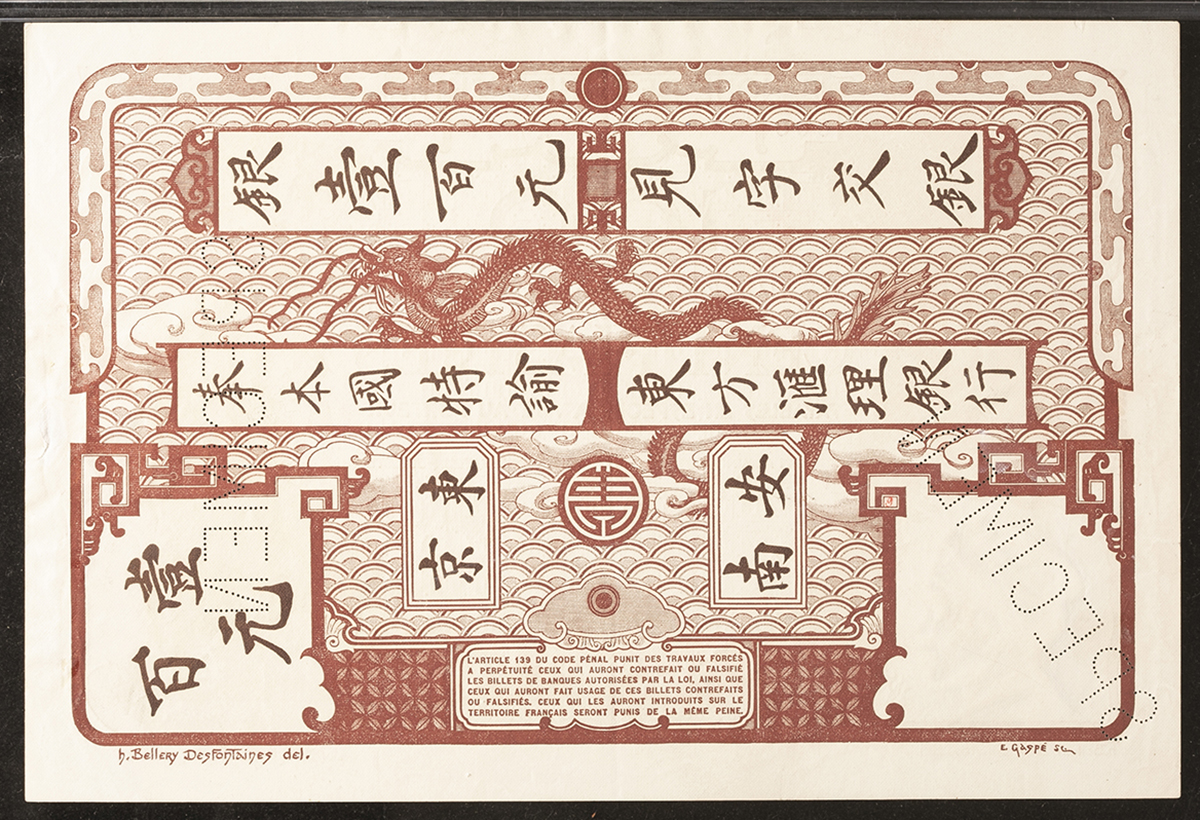 銀壹百元
見字交銀
奉本國特諭
東方滙理銀行
東京
安南
壹百
元
L'ARTICLE 139 DU CODE PÉNAL PUNIT DES TRAVAUX FORCÉS
A PERPÉTUITÉ CEUX QUI AURONT CONTREFAIT OU FALSIFIÉ
LES BILLETS DE BANQUES AUTORISÉES PAR LA LOI, AINSI QUE
CEUX QUI AURONT FAIT USAGE DE CES BILLETS CONTREFAITS
OU FALSIFIÉS. CEUX QUI LES AURONT INTRODUITS SUR LE
TERRITOIRE FRANÇAIS SERONT PUNIS DE LA MÊME PEINE.
h. Bellery Desfontaines del.
E. Gaspé sc
SPECIMEN
SPECIMEN